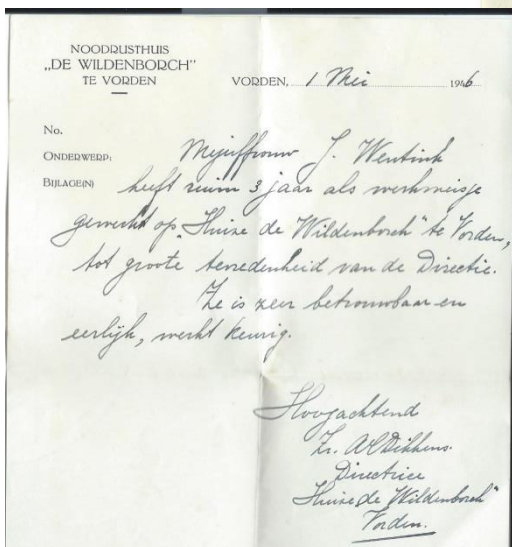 NOODRUSTHUIS
„DE WILDENBORCH"
TE VORDEN
VORDEN, 1 Mei 1946
No.
ONDERWERP: Mejuffrouw J. Wentink
BIJLAGE(N) heeft ruim 3 jaar als werkmeisje
gewerkt op „Huize de Wildenborch" te Vorden,
tot groote tevredenheid van de Directie.
Ze is zeer betrouwbaar en
eerlijk, werkt keurig.
Hoogachtend
Zr.
Directrice
„Huize de Wildenborch"
Vorden.